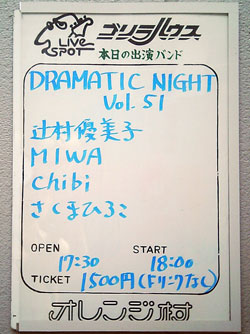 LIVE SPOT ゴリラハウス
本日の出演バンド
DRAMATIC NIGHT
Vol. 51
辻村優美子
MIWA
chibi
さくまひろこ
OPEN START
17:30 18:00
TICKET 1500円(ドリンクなし)
オレンジ村